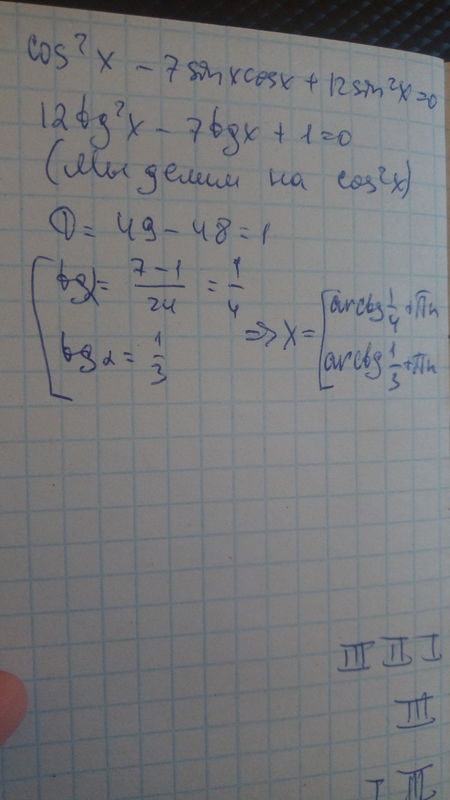 cos²x - 7sinxcosx + 12sin²x=0
12tg²x - 7tgx + 1=0
(Мы делим на cos²x)
D = 49 - 48 = 1
[tgx = (7-1)/24 = 1/4
tgx = 1/3 => x = [arctg 1/4 + πn
arctg 1/3 + πn
III II I
III
I III